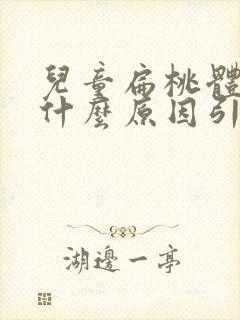 兒童扁桃體
什麼原因引
湖邊一亭